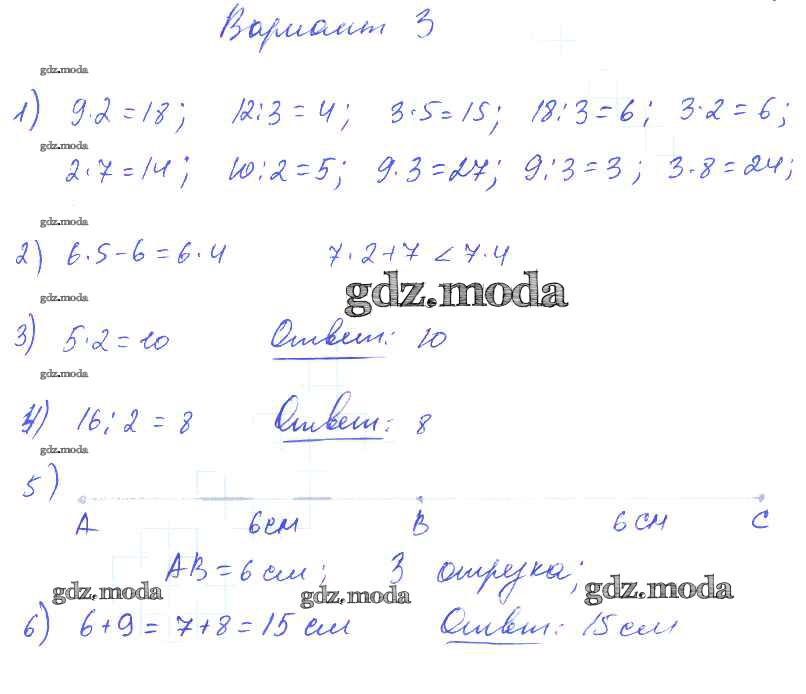 Вариант 3
gdz.moda
1) 9·2=18; 12:3=4; 3·5=15; 18:3=6; 3·2=6;
gdz.moda
2·7=14; 10:2=5; 9·3=27; 9:3=3; 3·8=24;
gdz.moda
2) 6·5-6=6·4 7·2+7<7·4
gdz.moda
gdz.moda
3) 5·2=10 Ответ: 10
gdz.moda
4) 16:2=8 Ответ: 8
gdz.moda
5)
A 6см B 6см C
AB=6см; 3 отрезка;
gdz.moda gdz.moda gdz.moda
6) 6+9=7+8=15 см Ответ: 15см